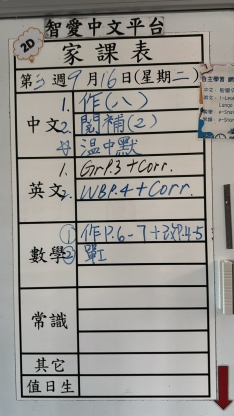 2D
智愛中文平台
家課表
第3週9月16日(星期二)
中文
1. 作(八)
2. 閱補(2)
溫中默
英文
1. GrP.3+Corr.
2. WBP.4+Corr.
數學
① 作P.6-7+改P.4-5
②
常識
其它
值日生
自主學習